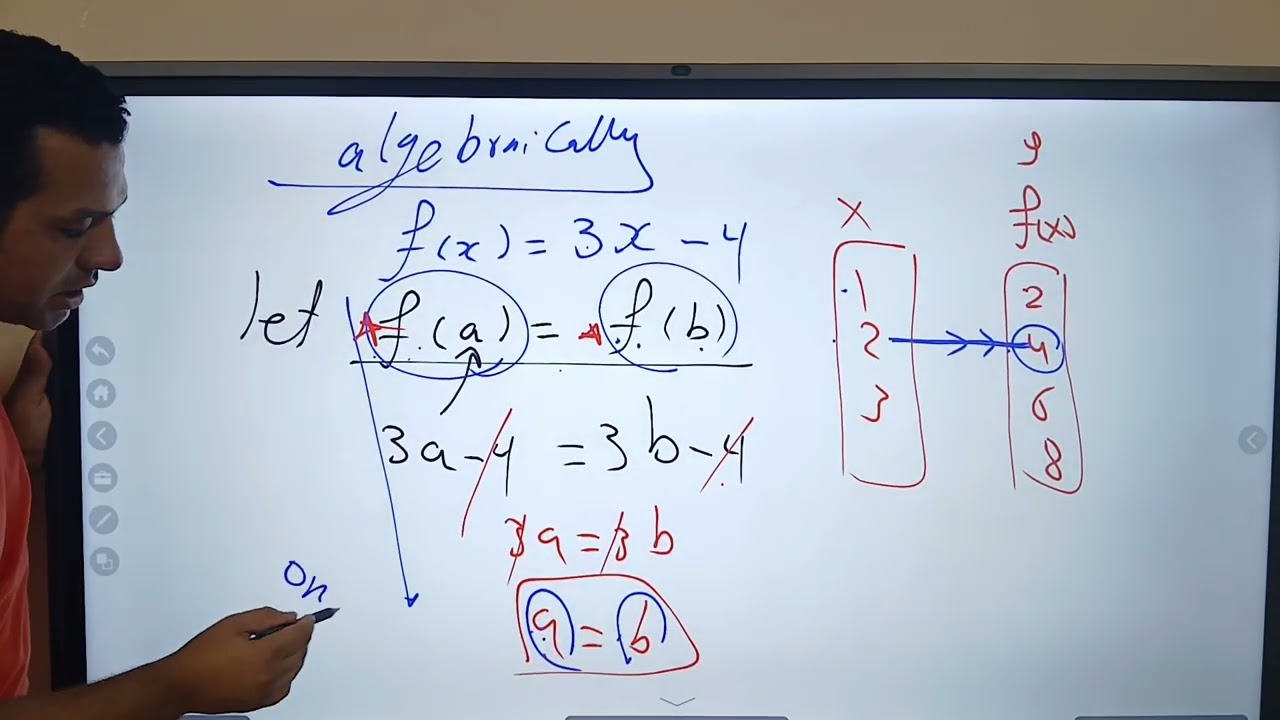 algebraically
f(x) = 3x - 4
let f(a) = f(b)
3a - 4 = 3b - 4
3a = 3b
a = b
On
x
y
f(x)
1
2
3
2
4
6
8